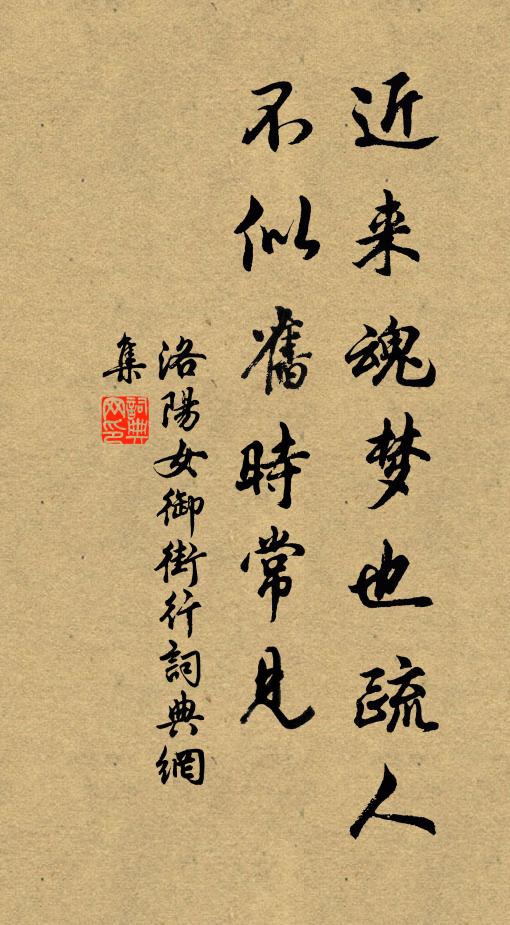 近来魂梦也疏人
不似舊時常見
洛陽女御街行詞典網
集
詞典網印